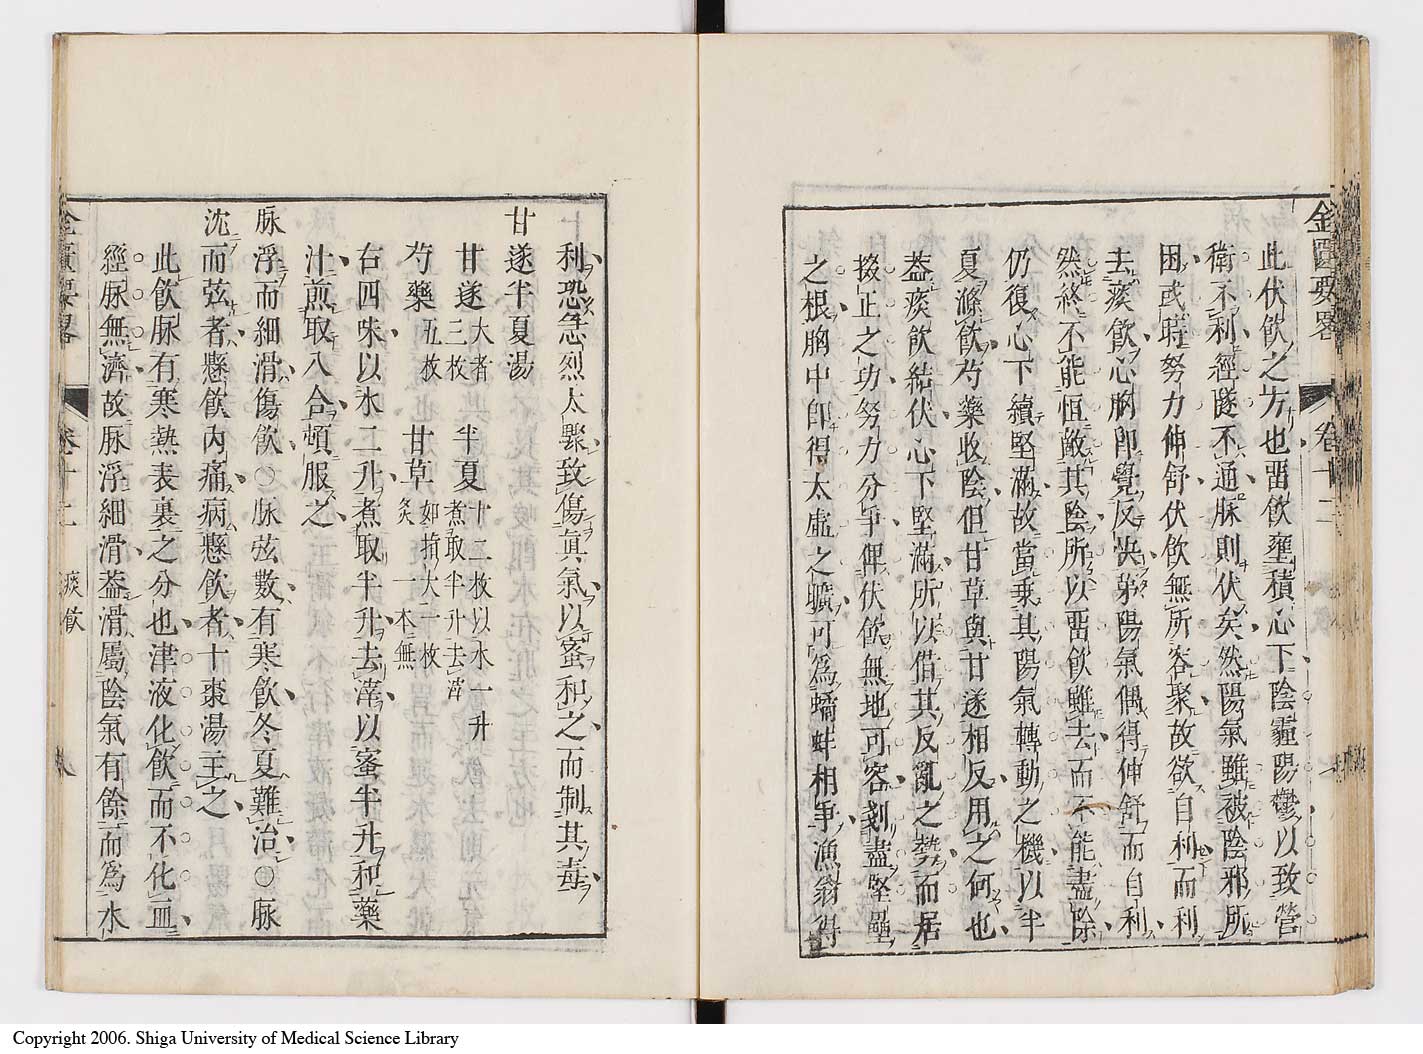 金匱要畧 卷十二
此伏飲之方也畱飲壅積心下陰霾陽鬱以致營
衛不利經隧不通脉則伏矣然陽氣雖被陰邪所
困或時努力伸舒伏飲無所容聚故欲自利而利
去痰飲心胸卽覺反快第陽氣偶得伸舒而自利
然終不能恒敵其陰所以畱飲雖去而不能盡除
仍復心下續堅滿故當乗其陽氣轉動之機以半
夏滌飲芍藥收陰但甘草與甘遂相反用之何也
葢痰飲結伏心下堅滿所以借其反亂之勢而居
撥正之功努力分爭俾伏飲無地可容剗盡堅壘
之根胸中卽得太虛之曠可為蟠蚌相爭漁翁得
利恐急烈太驟致傷眞氣以蜜和之而制其毒
甘遂半夏湯
甘遂大者三枚 半夏十二枚以水一升煮取半升去滓
芍藥五枚 甘草如指大一枚炙一本無
右四味以水二升煮取半升去滓以蜜半升和藥
汁煎取八合頓服之
脉浮而細滑傷飲○脉弦數有寒飲冬夏難治○脉
沈而弦者懸飲內痛病懸飲者十棗湯主之
此飲脉有寒熱表裏之分也津液化飲而不化血
經脉無濟故脉浮細滑葢滑屬陰氣有餘而為水
金匱要畧 卷十二 痰飲 八
Copyright 2006. Shiga University of Medical Science Library